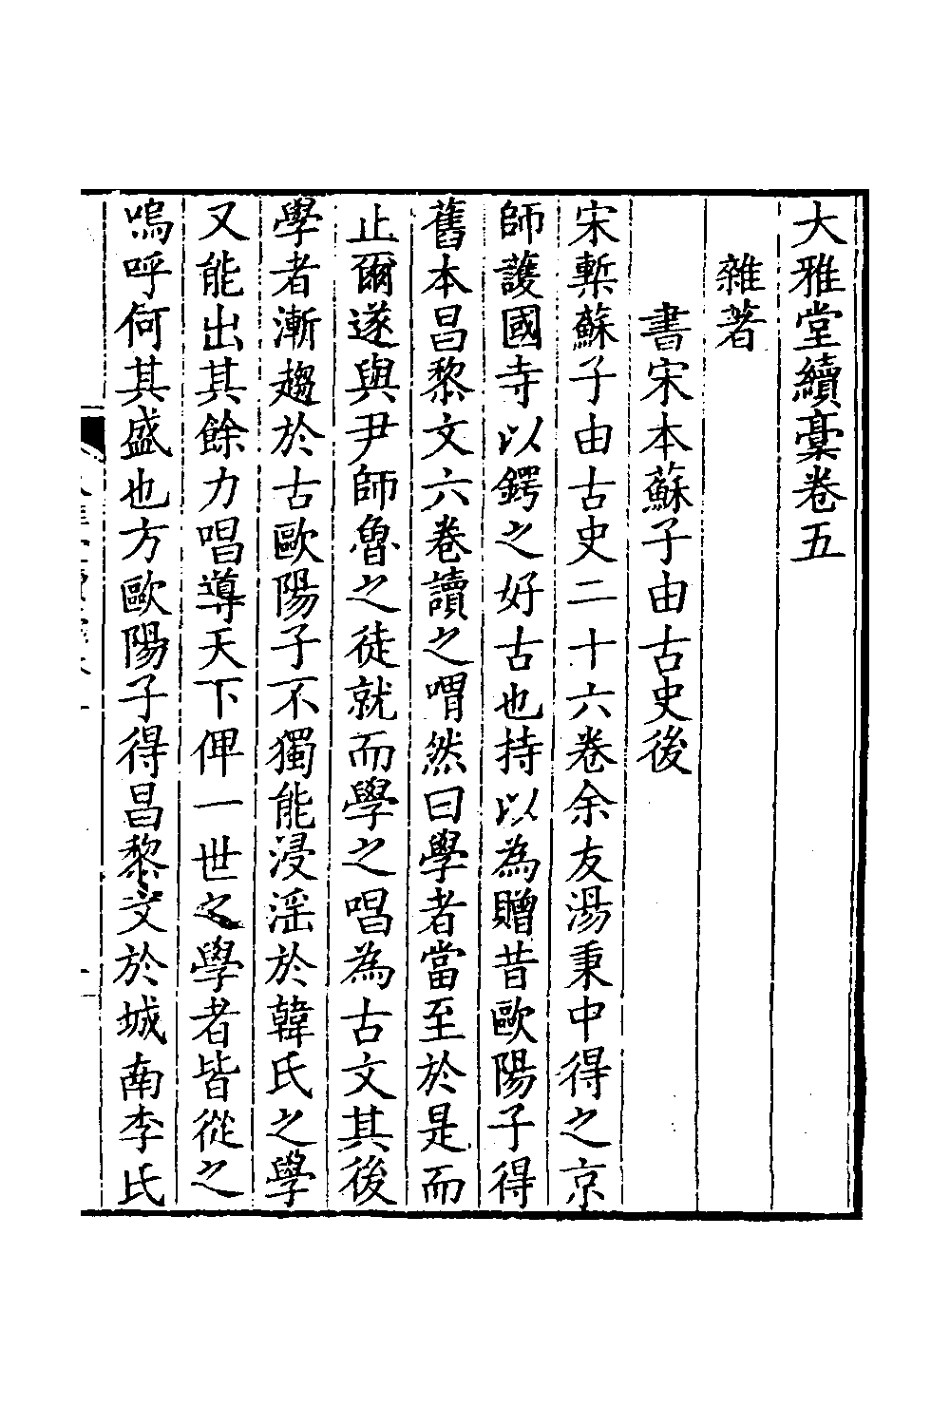 大雅堂續稾卷五
雜著
書宋本蘇子由古史後
宋槧蘇子由古史二十六卷余友湯秉中得之京
師護國寺以鍔之好古也持以為贈昔歐陽子得
舊本昌黎文六卷讀之喟然曰學者當至於是而
止爾遂與尹師魯之徒就而學之唱為古文其後
學者漸趨於古歐陽子不獨能浸淫於韓氏之學
又能出其餘力唱導天下俾一世之學者皆從之
嗚呼何其盛也方歐陽子得昌黎文於城南李氏